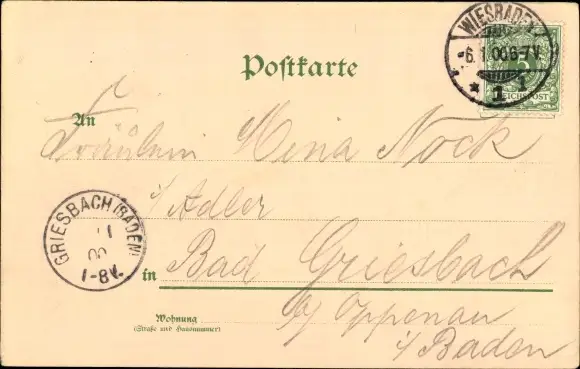 WIESBADEN
-6. 1. 00. 6-7V.
* 1 *
5
REICHSPOST
Postkarte
An
Fräulein Mina Nock
i/Adler
GRIESBACH (BADEN)
1-8V.
in Bad Griesbach
b/ Oppenau
i/ Baden
Wohnung
(Straße und Hausnummer)